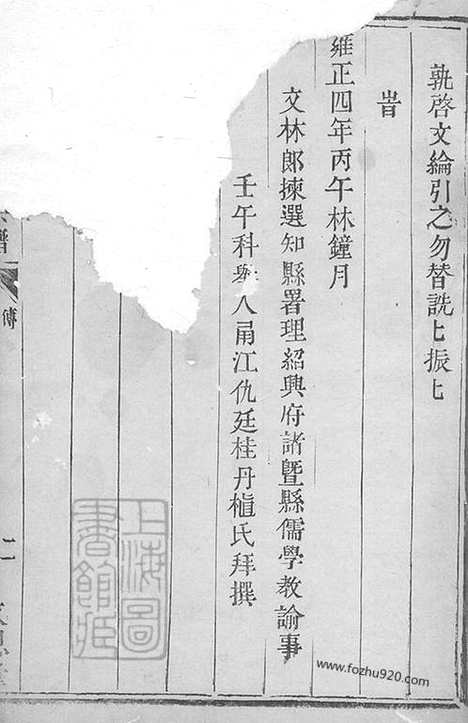 孰啓文綸引之勿替詵匕振匕
旹
雍正四年丙午林鐘月
文林郎揀選知縣署理紹興府諸暨縣儒學教諭事
壬午科舉人甬江仇廷桂丹植氏拜撰
譜
傳
二
上海圖書館藏
www.fozhu920.com